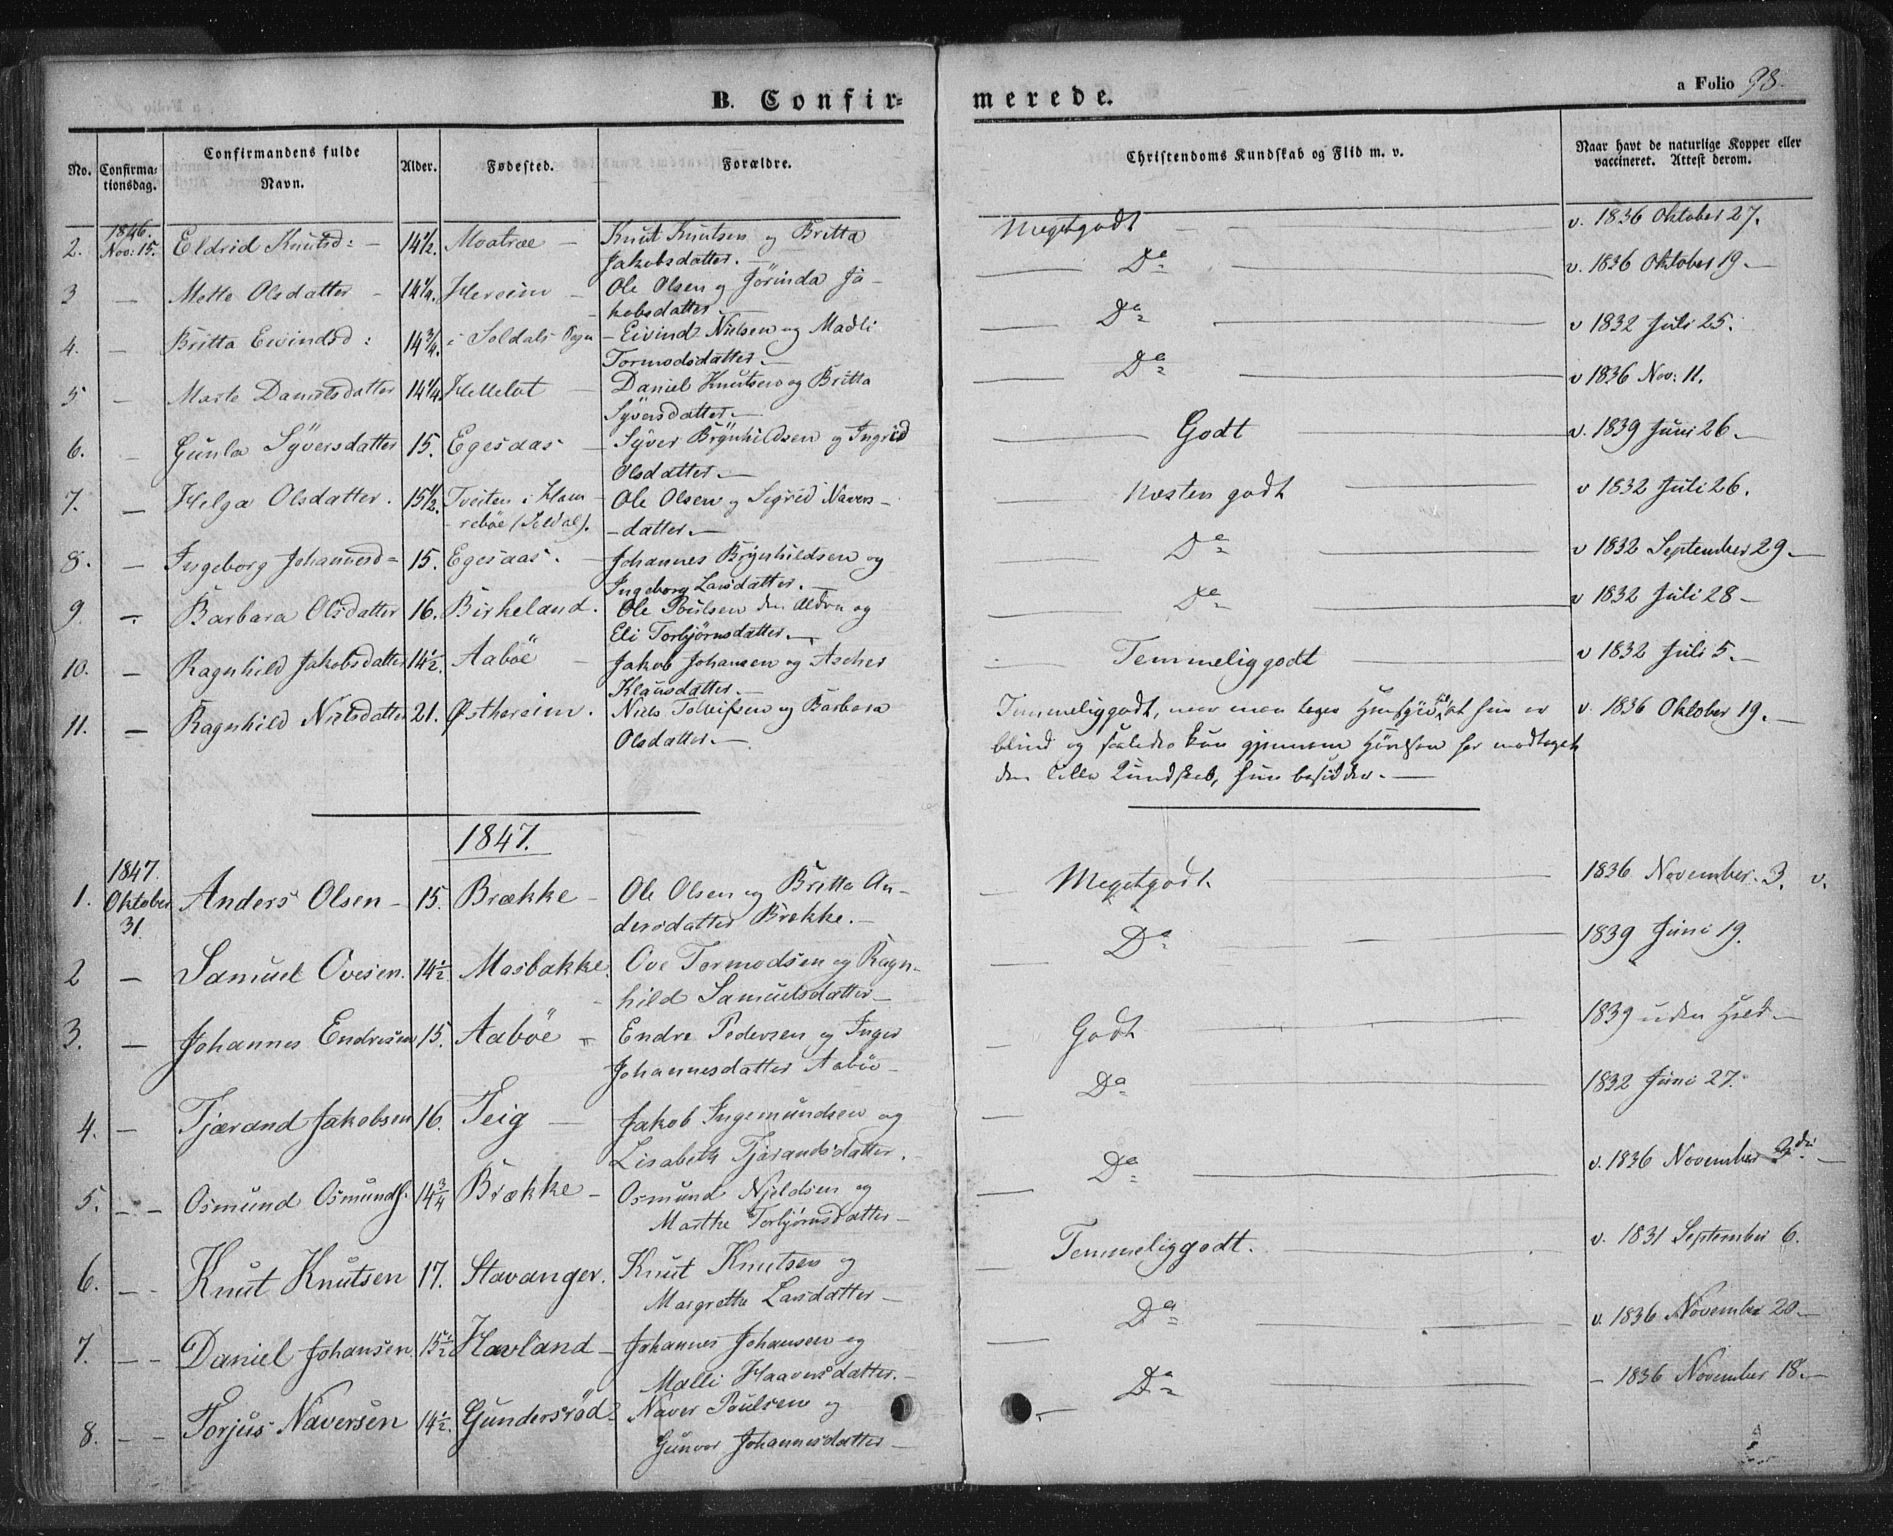 B. Confir=
merede.
a Folio 98.
No.
Confirma=
tionsdag.
Confirmandens fulde
Navn.
Alder.
Fødested.
Forældre.
Christendoms Kundskab og Flid m. v.
Naar havt de naturlige Kopper eller
vaccineret. Attest derom.
1846.
2. Nov: 15. Eldrid Knutsd: - 14 1/2. Moatræ - Knut Knutsen og Britta
Jakobsdatter. -
Megetgodt v. 1836 Oktober 27.
3 - Mette Olsdatter - 14 1/4. Hereim - Ole Olsen og Jörinda Ja-
kobsdatter
Do v. 1836 Oktober 19 -
4. - Britta Eivindsd: 14 3/4. i Soldals Sogn - Eivind Nielsen og Madli
Tormodsdatter. -
Do v 1832 Juli 25.
5 - Marte Danielsdatter 14 1/4. Helleløt - Daniel Knutsen og Britta
Syversdatter. -
Do v 1836 Nov: 11.
6. - Gunla Syversdatter 15. Egesaas - Syver Brynhildsen og Ingrid
Olsdatter. -
Godt v. 1839 Juni 26. -
7. - Helga Olsdatter. 15 1/2. Tveiten i Ham-
rebøe (Soldal). Ole Olsen og Sigrid Navers-
-datter. -
Næsten godt v 1832 Juli 26.
8. - Ingeborg Johannesd= 15. Egesaas. - Johannes Brynhildsen og
Ingeborg Larsdatter. -
Do v 1832 September 29. -
9. - Barbara Olsdatter 16. Birkeland. Ole Poulsen den Ældre og
Eli Torbjørnsdatter. -
Do v 1832 Juli 28 -
10. - Ragnhild Jakobsdatter 14 1/2. Aabøe - Jakob Johansen og Ascher
Klausdatter. -
Temmeliggodt v 1832 Juli 5. -
11. - Ragnhild Nielsdatter 21. Østhereim. Niels Tolleifsen og Barbara
Olsdatter. -
Temmeliggodt, naar man tager Hensyn til at hun er v. 1836 Oktober 19. -
blind og saaledes kun gjennem Hørelsen har modtaget
den lille Kundskab, hun besidder. -
1847.
1847.
1. Oktober
31. Anders Olsen - 15. Brække - Ole Olsen og Britta An-
dersdatter Brekke. -
Megetgodt. 1836 November. 3. v.
2 - Samuel Ovesen. 14 1/2. Mosbakke Ove Tormodsen og Ragn-
hild Samuelsdatter -
Do 1839 Juni 19.
3. - Johannes Endresen 15. Aabøe - Endre Pedersen og Inger
Johannesdatter Aabøe -
Godt 1839 uden Held -
4. - Tjærand Jakobsen 16. Teig - Jakob Ingemundsen og
Lisabeth Tjærandsdatter.
Do 1832 Juni 27.
5. - - Osmund Osmunds. 14 3/4 Brække - Osmund Njeldsen og
Marthe Torbjørnsdatter -
Do v. 1836 November 3die -
6. - - Knut Knutsen 17. Stavanger. Knut Knutsen og
Margrethe Larsdatter -
Temmeliggodt. v. 1831 September 6.
7. - - Daniel Johansen 15 1/2 Havland - Johannes Johansen og
Malli Haaversdatter. -
Do v. 1836 November 20. -
8. - - Torjus Naversen 14 1/2. Gundersrød Naver Poulsen og
Gunvor Johannesdatter -
Do - 1836 November 18. -